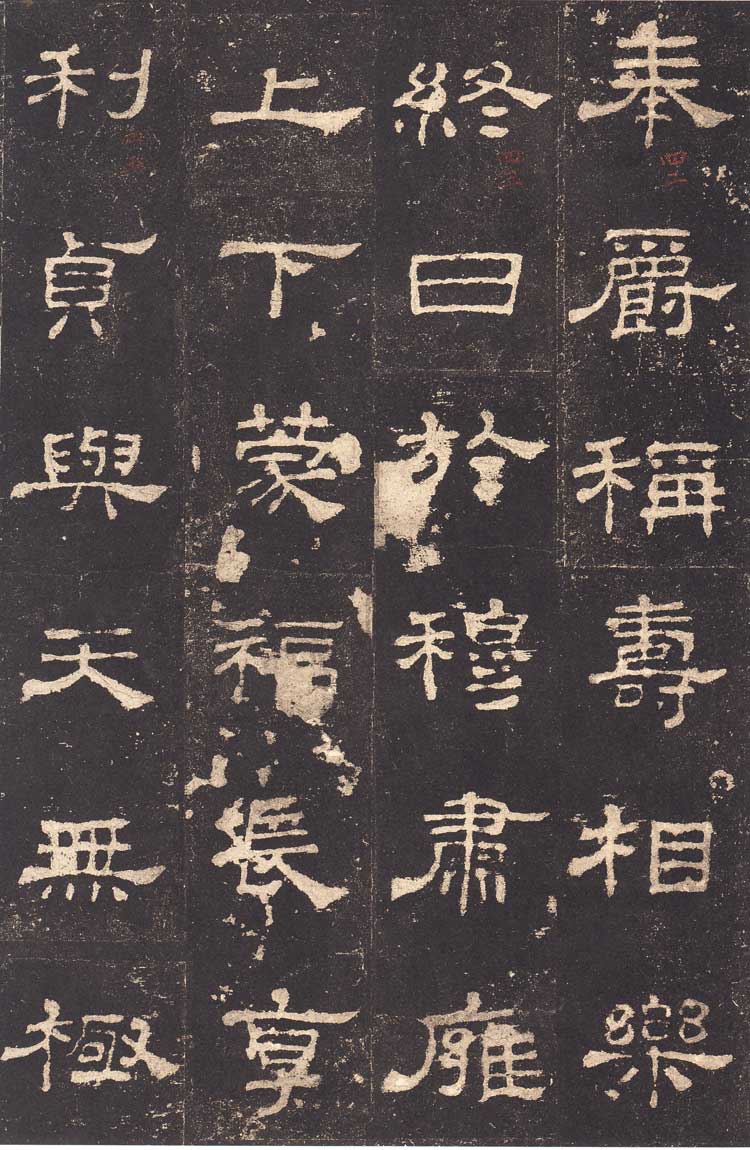 奉爵稱壽相樂
終日於穆肅雍
上下蒙福長享
利貞與天無極
四二
四三